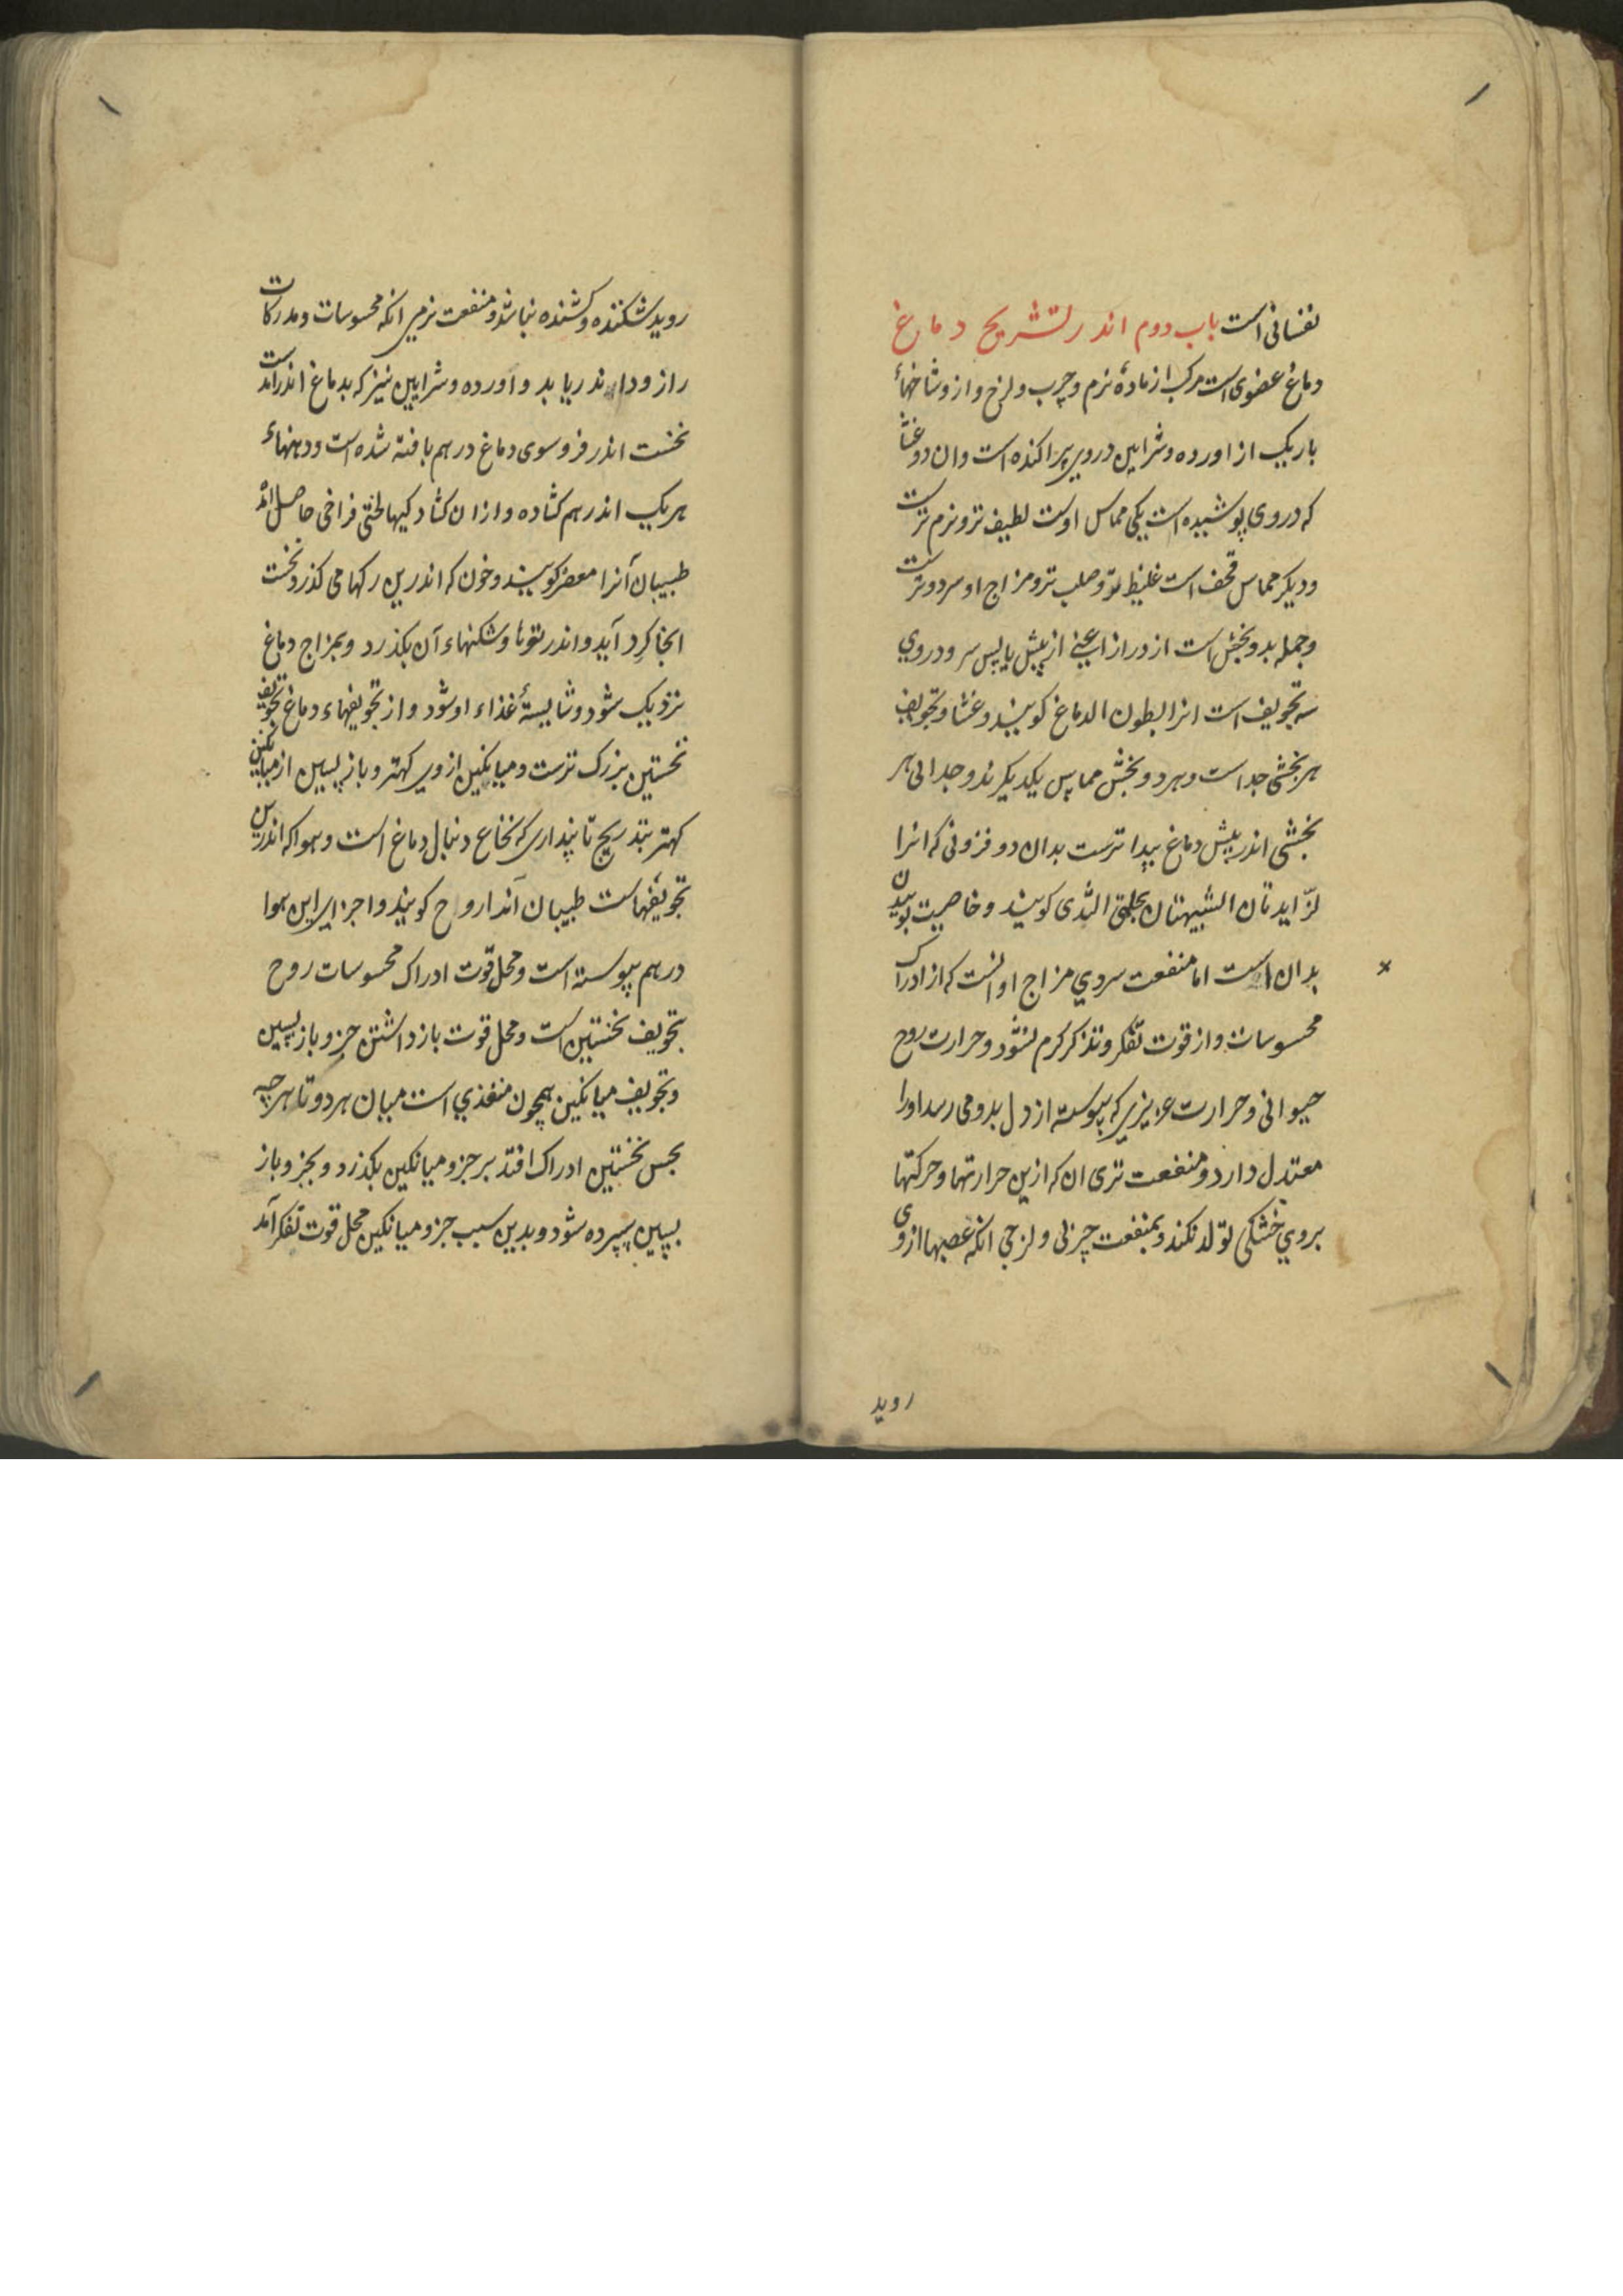 نفسانی است باب دوم اندر تشریح دماغ
دماغ عضوی است مرکب از مادهٔ نرم و چرب و لزج و از و شاخهاءٔ
باریک از اورده و شرایین در وی پراکنده است و ان دو غشا
که در وی پوشیده است یکی مماس اوست لطیف تر و نرم ترست
و دیکر مماس قحف است غلیظ تر و صلب تر و مزاج او سرد و ترست
و جمله بدو بخش است از درازا یعنی از پیش یا پس سر و در وی
سه تجویف است انرا بطون الدماغ کویند و غشا و تجویف
هر بخشی جداست و هر دو بخش مماس یکدیکرند و جدائی هر
بخشی اندر پیش دماغ پیدا ترست بدان دو فزونی که انرا
لزایدتان الشبیهتان بحلمتی الثدی کویند و خاصیت بوییدن
بدان است اما منفعت سردی مزاج او انست که از ادراک
محسوسات و از قوت تفکر و تذکر کرم نشود و حرارت روح
حیوانی و حرارت عزیزی که پیوسته از دل بدو می رسد اورا
معتدل دارد و منفعت تری ان که ازین حرارتها و حرکتها
بروی خشکی تولد نکند و منفعت چربی و لزجی انکه عصبها از وی
روید
روید شکننده و کشنده نباشد و منفعت نرمی انکه محسوسات و مدرکات
را زود اندر یابد و اورده و شرایین نیز که بدماغ اندر امدست
نخست اندر فروسوی دماغ درهم بافته شده است و دهنهاءٔ
هر یک اندر هم کشاده و ازان کشادکیها لختی فراخی حاصل امد
طبیبان آنرا معصر کویند و خون که اندرین رکها می کذرد نخست
انجا کرد آید و اندر تویها و شکنهاء آن بکذرد و بمزاج دماغ
نزدیک شود و شایستهٔ غذاء او شود و از تجویفهاء دماغ تجویف
نخستین بزرک ترست و میانکین ازوی کهتر و باز پسین از میانکین
کهتر بتدریج تا پنداری که نخاع دنبال دماغ است و هوا که اندرین
تجویفهاست طبیبان آنرا روح کویند و اجزای این هوا
درهم پیوسته است و محل قوت ادراک محسوسات روح
تجویف نخستین است و محل قوت باز داشتن جزو باز پسین
و تجویف میانکین همچون منفذی است میان هر دو تا هر چه
بحس نخستین ادراک افتد بر جزو میانکین بکذرد و بجزو باز
پسین سپرده شود و بدین سبب جزو میانکین محل قوت تفکر آمد